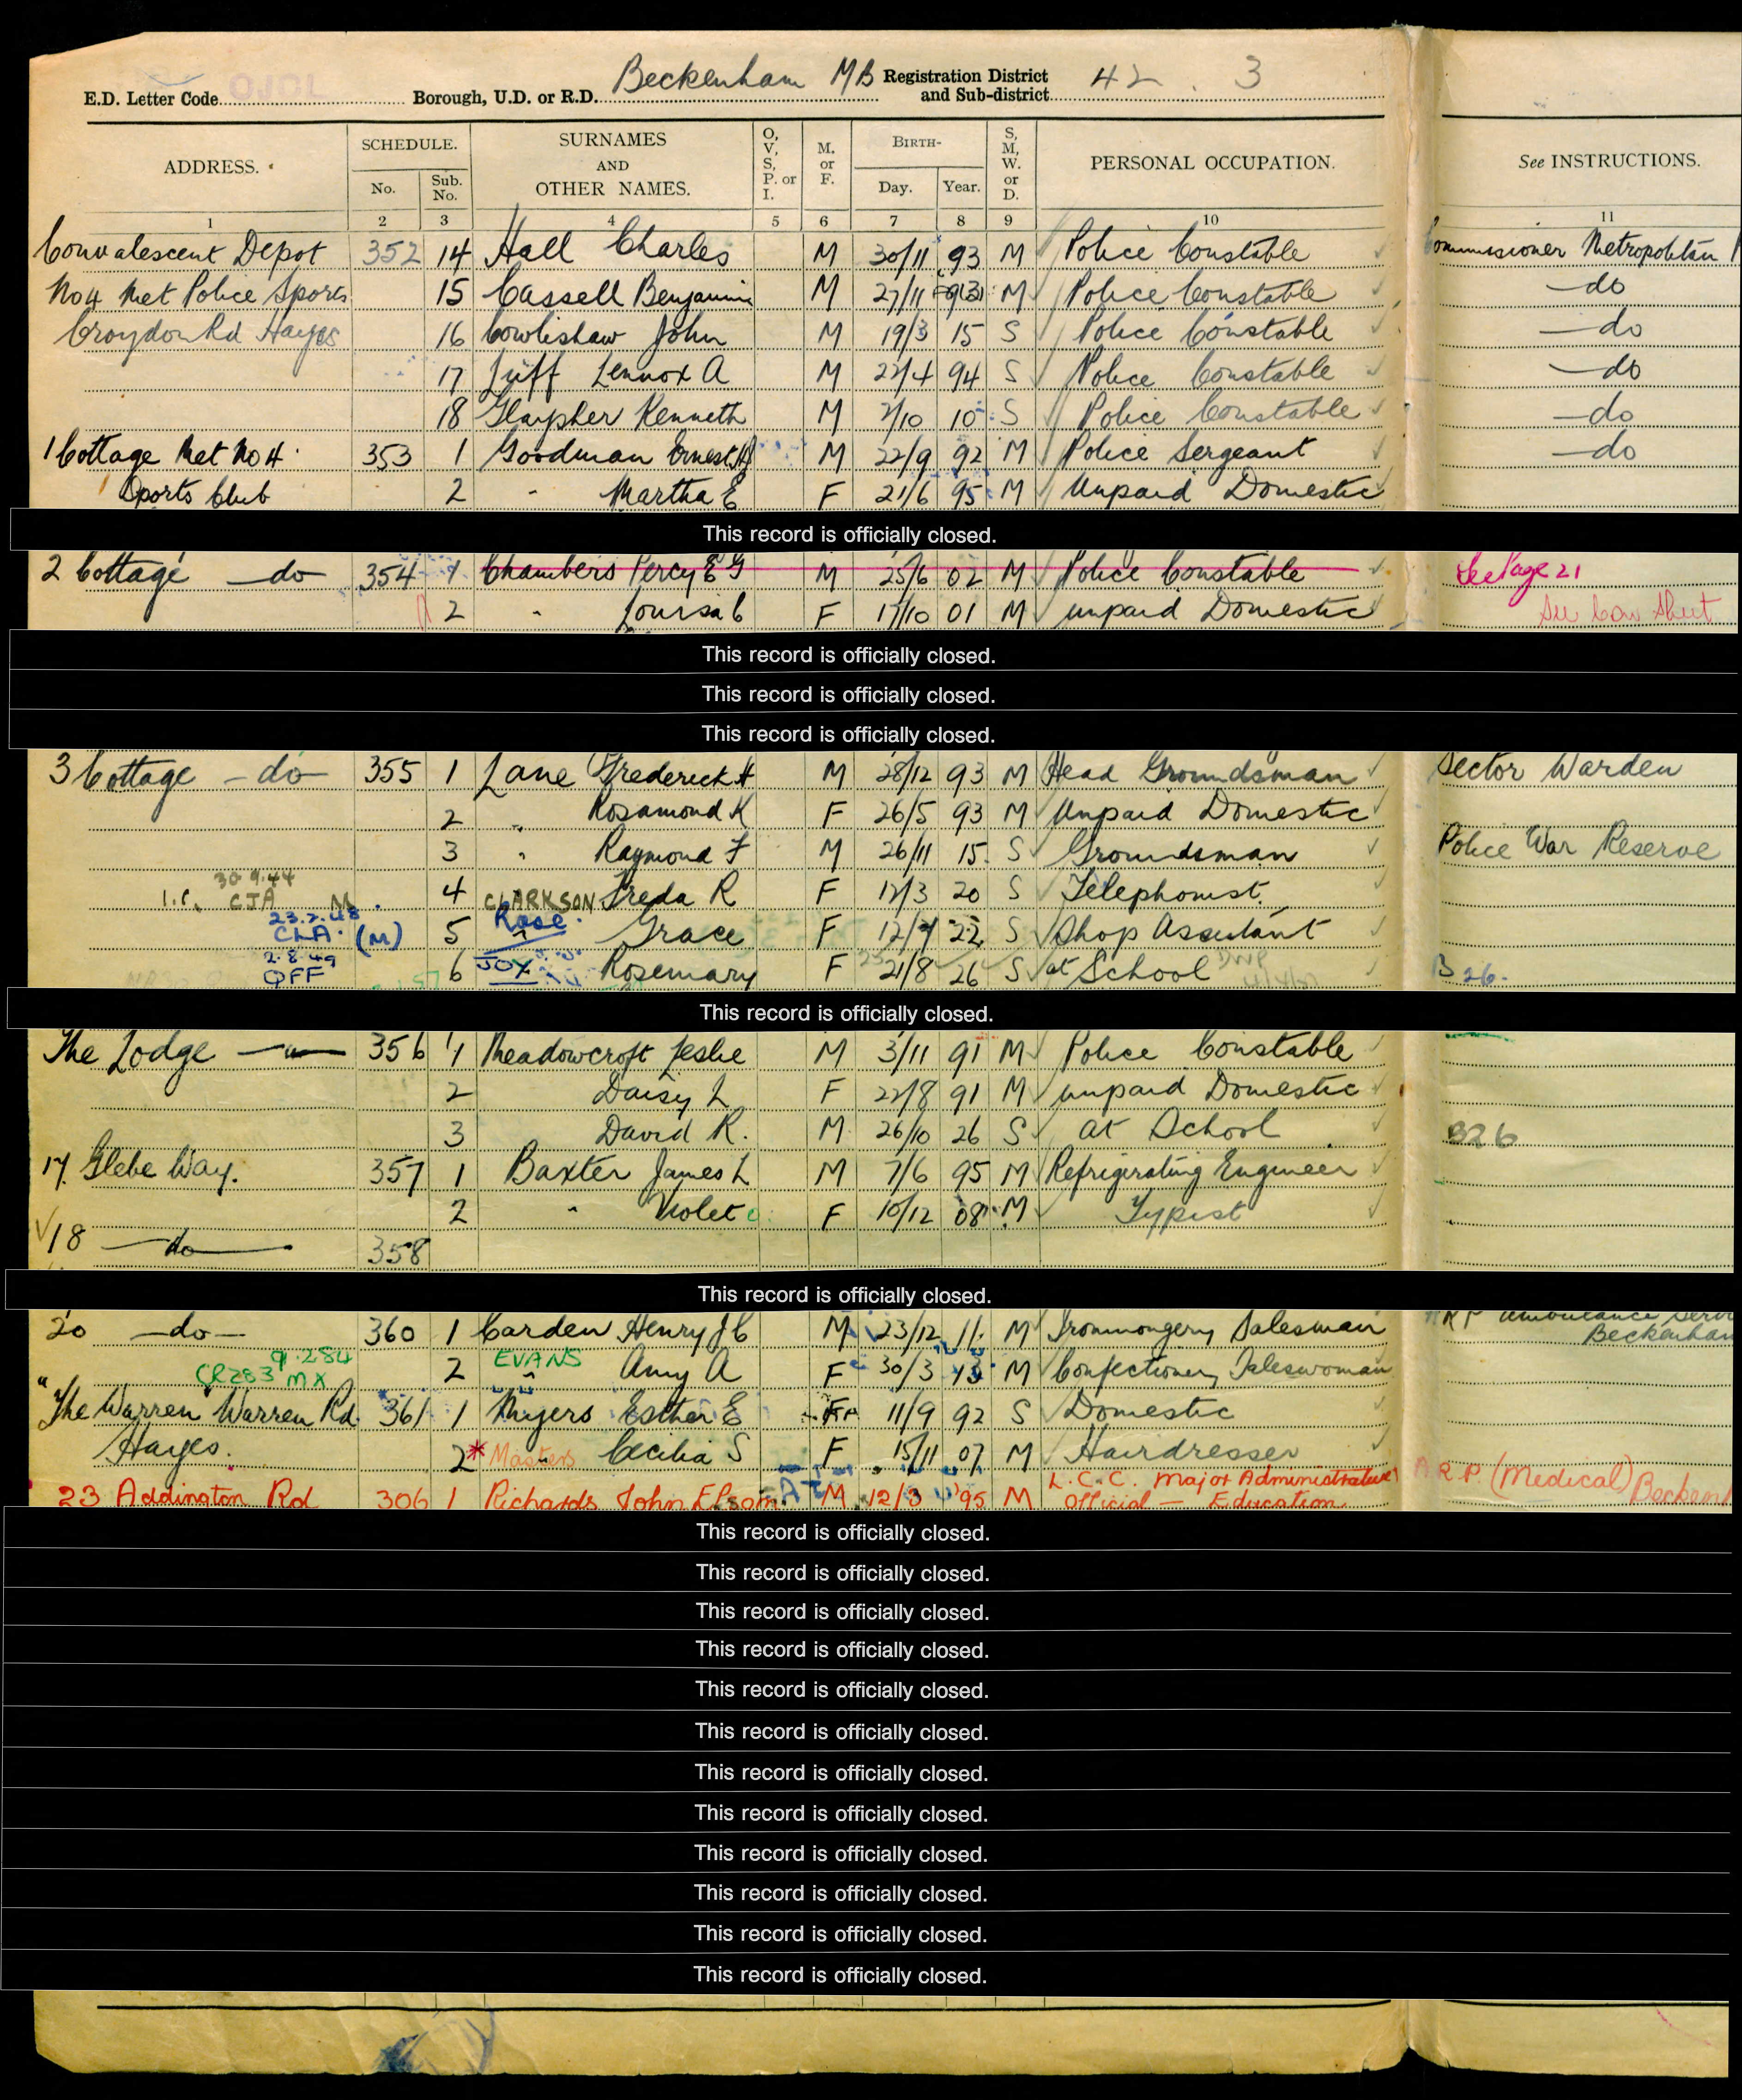 E.D. Letter Code OJOL Borough, U.D. or R.D. Beckenham MB Registration District and Sub-district 42 . 3
ADDRESS. SCHEDULE. No. Sub. No. SURNAMES AND OTHER NAMES. O, V, S, P. or I. M. or F. BIRTH- Day. Year. S, M, W. or D. PERSONAL OCCUPATION. See INSTRUCTIONS.
1 2 3 4 5 6 7 8 9 10 11
Convalescent Depot 352 14 Hall Charles M 30/11 93 M Police Constable Commissioner Metropolitan
No 4 Met Police Sports 15 Cassell Benjamin M 27/11 M Police Constable — do
Croydon Rd Hayes 16 Cowlishaw John M 19/3 15 S Police Constable — do
17 Juff Lennox A M 22/4 94 S Police Constable — do
18 Kenneth M 2/10 10 S Police Constable — do
1 Cottage Met No 4 353 1 Goodman Ernest M 22/9 92 M Police Sergeant — do
Sports Club 2 " Martha E F 21/6 95 M Unpaid Domestic
This record is officially closed.
2 Cottage — do — 354 1 Chambers Percy E G M 25/6 02 M Police Constable See Page 21
2 " Louisa C F 17/10 01 M unpaid Domestic See Con Sheet
This record is officially closed.
This record is officially closed.
This record is officially closed.
3 Cottage — do — 355 1 Lane Frederick H M 28/12 93 M Head Groundsman Sector Warden
2 " Rosamond K F 26/5 93 M Unpaid Domestic
3 " Raymond F M 26/11 15 S Groundsman Police War Reserve
30.9.44
CJA M. 4 CLARKSON Freda R F 12/3 20 S Telephonist.
23.2.48 Rose.
CLA. (M) 5 " Grace F 12/7 22 S Shop Assistant
2.8.49
QFF 6 JOY Rosemary F 21/8 26 S at School B 26.
This record is officially closed.
The Lodge — " — 356 1 Meadowcroft Leslie M 3/11 91 M Police Constable
2 Daisy L F 22/8 91 M unpaid Domestic
3 David R. M 26/10 26 S at School B26
17 Glebe Way. 357 1 Baxter James L M 7/6 95 M Refrigerating Engineer
2 " Violet F 10/12 08 M Typist
18 — do — 358
This record is officially closed.
20 — do — 360 1 Carden Henry J C M 23/12 11 M Ironmongery Salesman ARP Ambulance Serv
Beckenham
9.2.54 EVANS
CR283 MX 2 " Amy A F 30/3 13 M Confectionery Saleswoman
The Warren Warren Rd 361 1 Myers Esther E F 11/9 92 S Domestic
Hayes. 2* Masters Cecilia S F 15/11 07 M Hairdresser
23 Addington Rd 306 1 Richards John M 12/3 95 M L.C.C. Major Administrative A.R.P. (Medical)
Official — Education
This record is officially closed.
This record is officially closed.
This record is officially closed.
This record is officially closed.
This record is officially closed.
This record is officially closed.
This record is officially closed.
This record is officially closed.
This record is officially closed.
This record is officially closed.
This record is officially closed.
This record is officially closed.